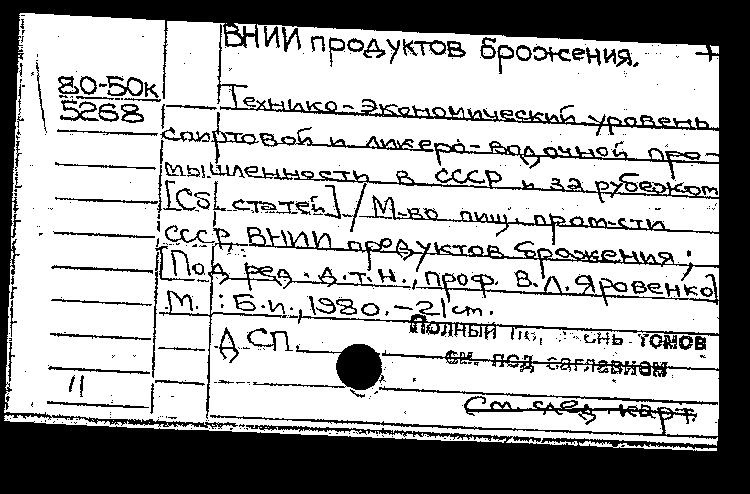 ВНИИ продуктов брожения. +
80-50к
5268
Технико-экономический уровень
спиртовой и ликеро-водочной про-
мышленности в СССР и за рубежом
[Сб. статей] / М-во пищ. пром-сти
СССР, ВНИИ продуктов брожения;
[Под ред. д.т.н., проф. В.Л. Яровенко]
М. : Б.и., 1980. - 21 cm.
ДСП.
Полный томов
см. под заглавном
11
См. след. карт.